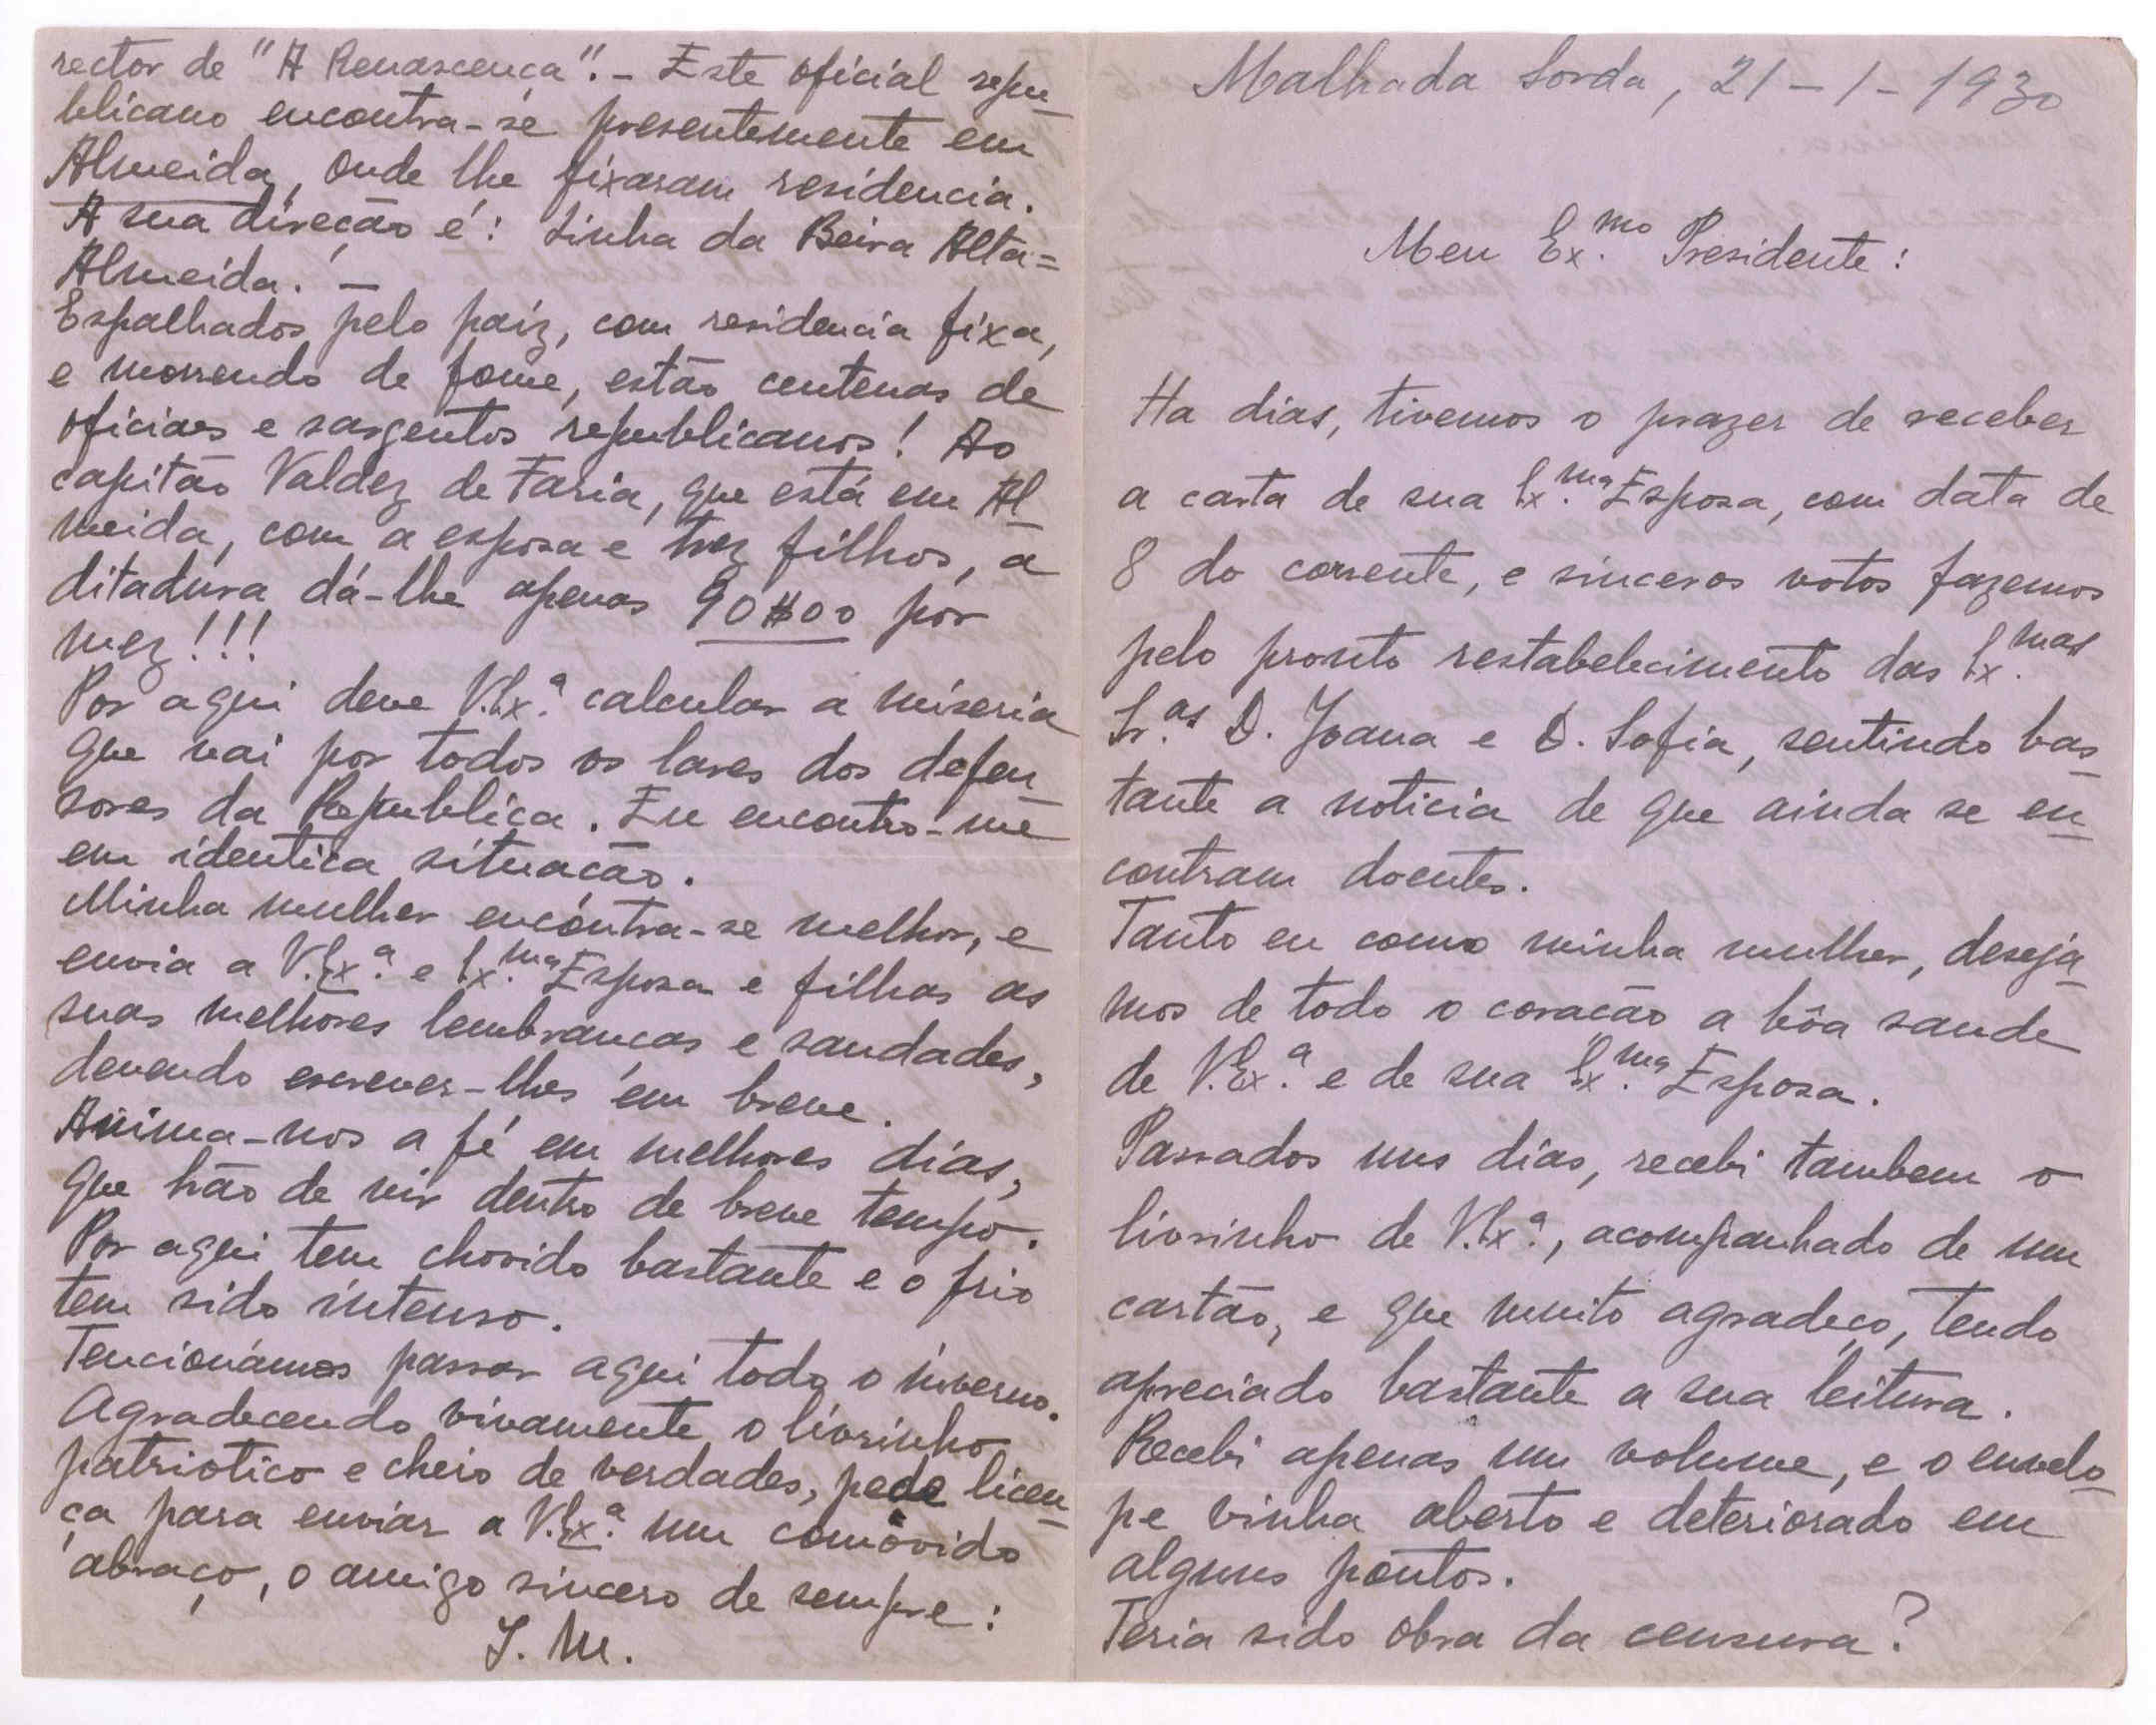 Malhada Sorda, 21-1-1930
Meu Ex.mo Presidente:
Ha dias, tivemos o prazer de receber
a carta de sua Ex.ma Esposa, com data de
8 do corrente, e sinceros votos fazemos
pelo pronto restabelecimento das Ex.mas
Sr.as D. Joana e D. Sofia, sentindo bas-
tante a noticia de que ainda se en-
contram doentes.
Tanto eu como minha mulher, deseja-
mos de todo o coração a bôa saude
de V.Ex.a e de sua Ex.ma Esposa.
Passados uns dias, recebi tambem o
livrinho de V.Ex.a, acompanhado de um
cartão, e que muito agradeço, tendo
apreciado bastante a sua leitura.
Recebi apenas um volume, e o envelo-
pe vinha aberto e deteriorado em
alguns pontos.
Teria sido obra da censura?
rector de "A Renascença".- Este oficial repu-
blicano encontra-se presentemente em
Almeida, onde lhe fixaram residencia.
A sua direção é: Linha da Beira Alta=
Almeida. -
Espalhados pelo paiz, com residencia fixa,
e morrendo de fome, estão centenas de
oficiaes e sargentos republicanos! Ao
capitão Valdez de Faria, que está em Al-
meida, com a esposa e trez filhos, a
ditadura dá-lhe apenas 90$00 por
mez!!!
Por aqui deve V.Ex.a calcular a miseria
que vai por todos os lares dos defen-
sores da Republica. Eu encontro-me
em identica situação.
Minha mulher encontra-se melhor, e
envia a V.Ex.a e Ex.ma Esposa e filhas as
suas melhores lembranças e saudades,
devendo escrever-lhes em breve.
Anima-nos a fé em melhores dias,
que hão de vir dentro de breve tempo.
Por aqui tem chovido bastante e o frio
tem sido intenso.
Tencionâmos passar aqui todo o inverno.
Agradecendo vivamente o livrinho
patriotico e cheio de verdades, pede licen-
ça para enviar a V.Ex.a um comovido
abraço, o amigo sincero de sempre:
J. M.